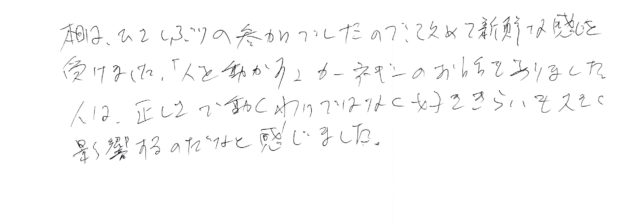 相は、ひさしぶりの参加でしたので、改めて新鮮な感じを
受けました。「人を動かす」カーネギーのお話もありました
人は、正しさで動くわけではなく好ききらいも大きく
影響するのだなと感じました。